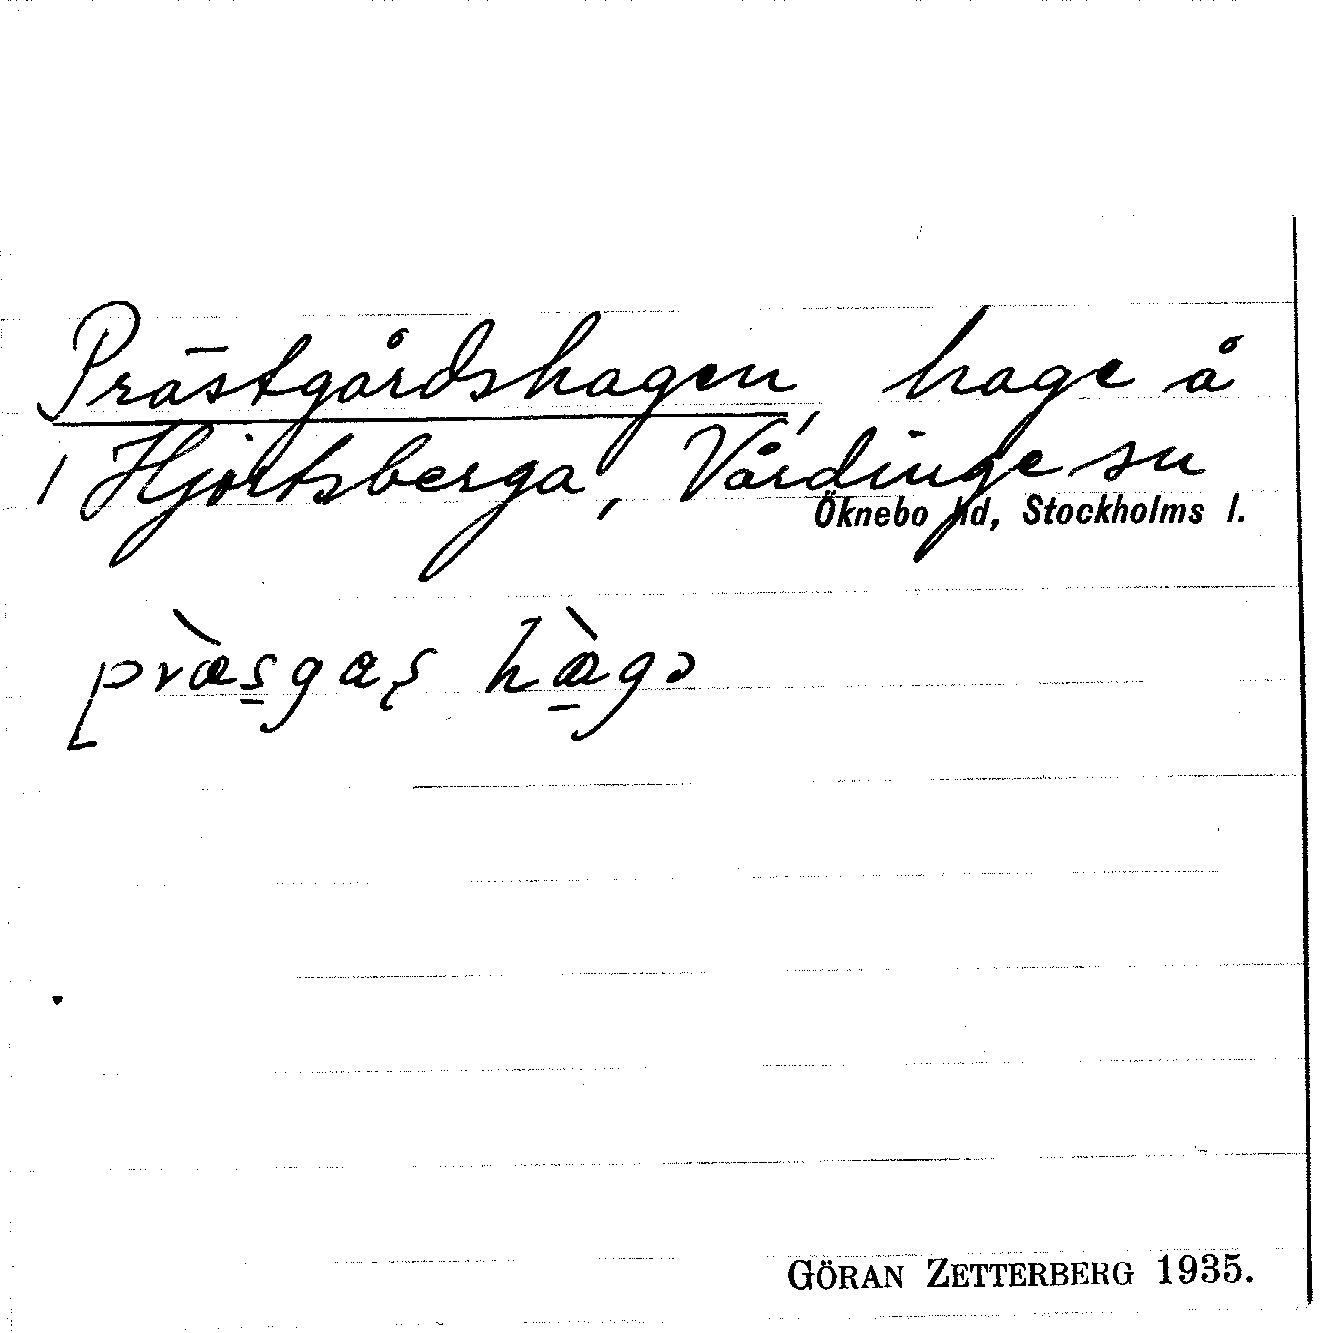 Prästgårdshagen, hage å
/ Hjortsberga, Vårdinge sn
Öknebo hd, Stockholms l.
pràs̱gaʂ hàgɔ
GÖRAN ZETTERBERG 1935.